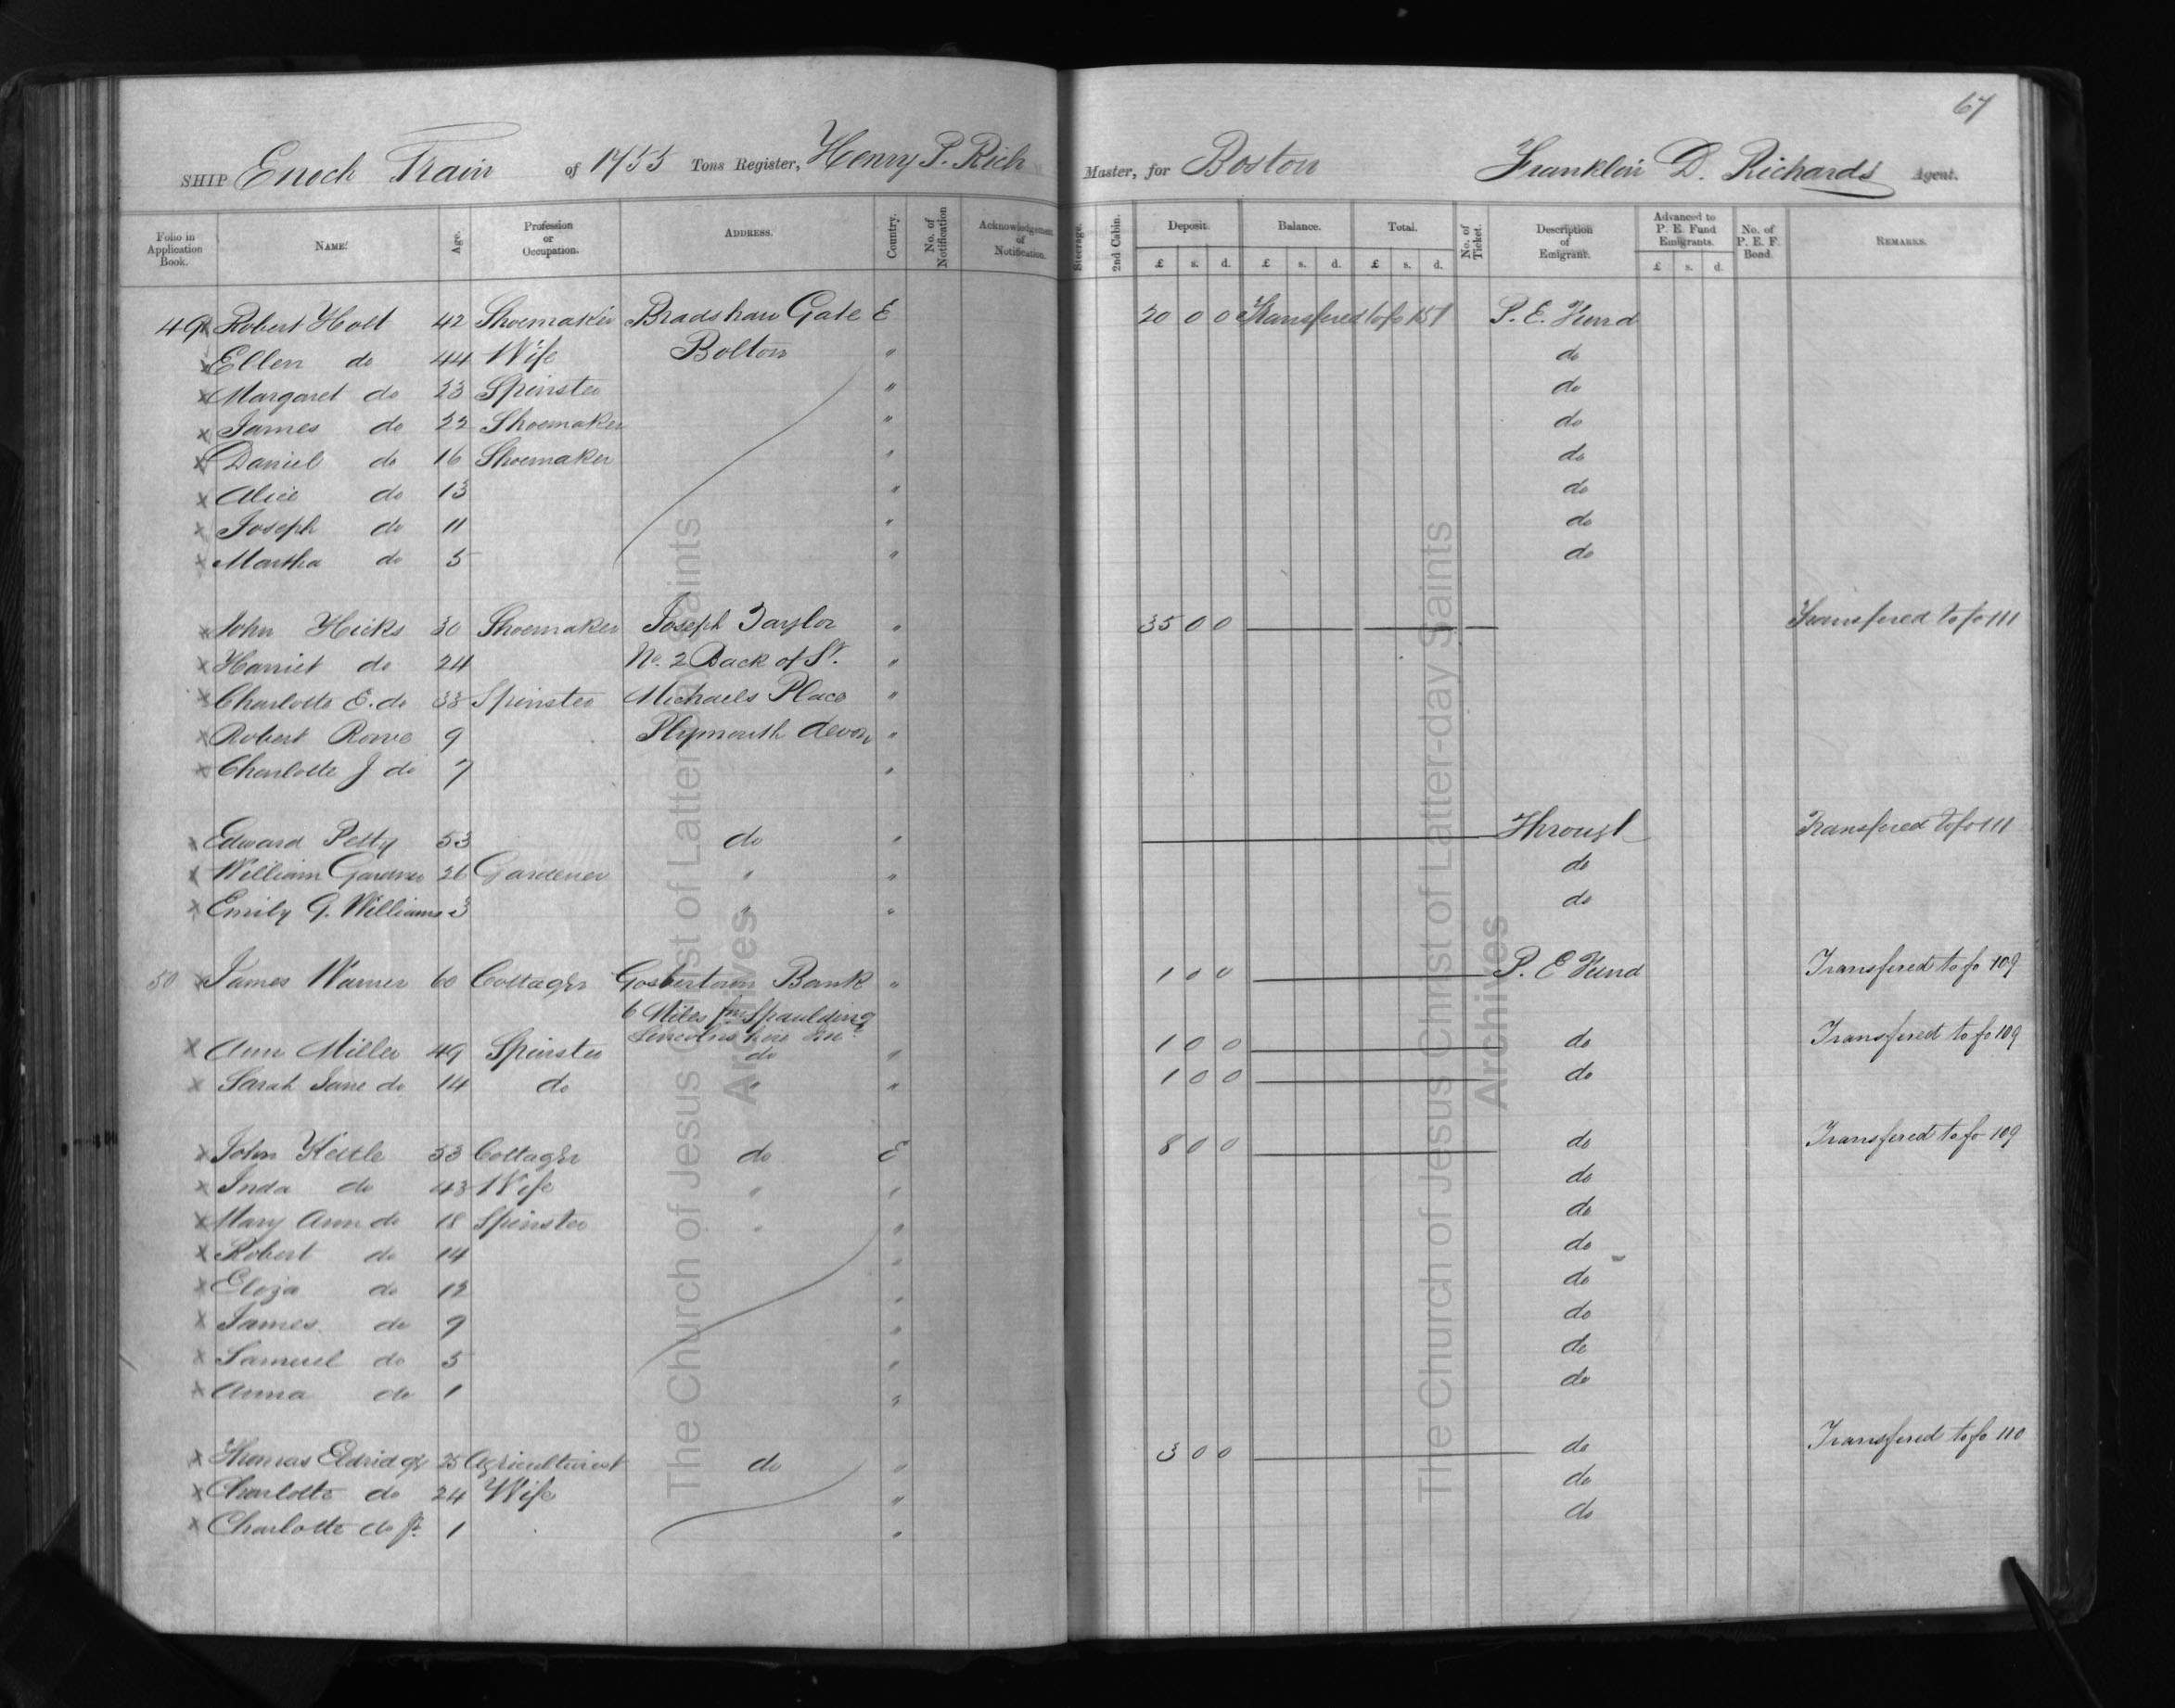 67
SHIP Enoch Train of 1455 Tons Register, Henry P. Rich Master, for Boston Franklin D. Richards Agent.
Folio in Application Book. NAME. Age. Profession or Occupation. ADDRESS. Country. No. of Notification Acknowledgement of Notification. Steerage. 2nd Cabin. Deposit. £ s. d. Balance. £ s. d. Total. £ s. d. No. of Ticket. Description of Emigrant. Advanced to P. E. Fund Emigrants. £ s. d. No. of P. E. F. Bond. REMARKS.
49 x Robert Holt 42 Shoemaker Bradshaw Gate E 20 0 0 Transfered to fo 151 P. E. Fund
x Ellen do 44 Wife Bolton " do
x Margaret do 23 Spinster " do
x James do 22 Shoemaker " do
x Daniel do 16 Shoemaker " do
x Alice do 13 " do
x Joseph do 11 " do
x Martha do 5 " do
x John Hicks 30 Shoemaker Joseph Taylor " 35 0 0 Transfered to fo 111
x Harriet do 24 No. 2 Back of St. "
x Charlotte E. do 33 Spinster Michaels Place "
x Robert Rowe 9 Plymouth Devon "
x Charlotte J do 7 "
x Edward Petty 53 do " Through Transfered to fo 111
x William Gardner 26 Gardener " " do
x Emily G. Williams 3 " " do
50 x James Warner 60 Cottager Gosbertown Bank " 1 0 0 P. E Fund Transfered to fo 109
6 Miles fm Spaulding
Lincolnshire
x Ann Miller 49 Spinster do " 1 0 0 do Transfered to fo 109
x Sarah Jane do 14 do " " 1 0 0 do
x John Kettle 53 Cottager do E 8 0 0 do Transfered to fo 109
x Inda do 43 Wife " " do
x Mary Ann do 18 Spinster " " do
x Robert do 14 " do
x Eliza do 12 " do
x James do 9 " do
x Samuel do 5 " do
x Anna do 1 " do
x Thomas Eldridge 25 Agriculturist do " 3 0 0 do Transfered to fo 110
x Charlotte do 24 Wife " do
x Charlotte do Jr. 1 " do
The Church of Jesus Christ of Latter-day Saints
Archives
The Church of Jesus Christ of Latter-day Saints
Archives